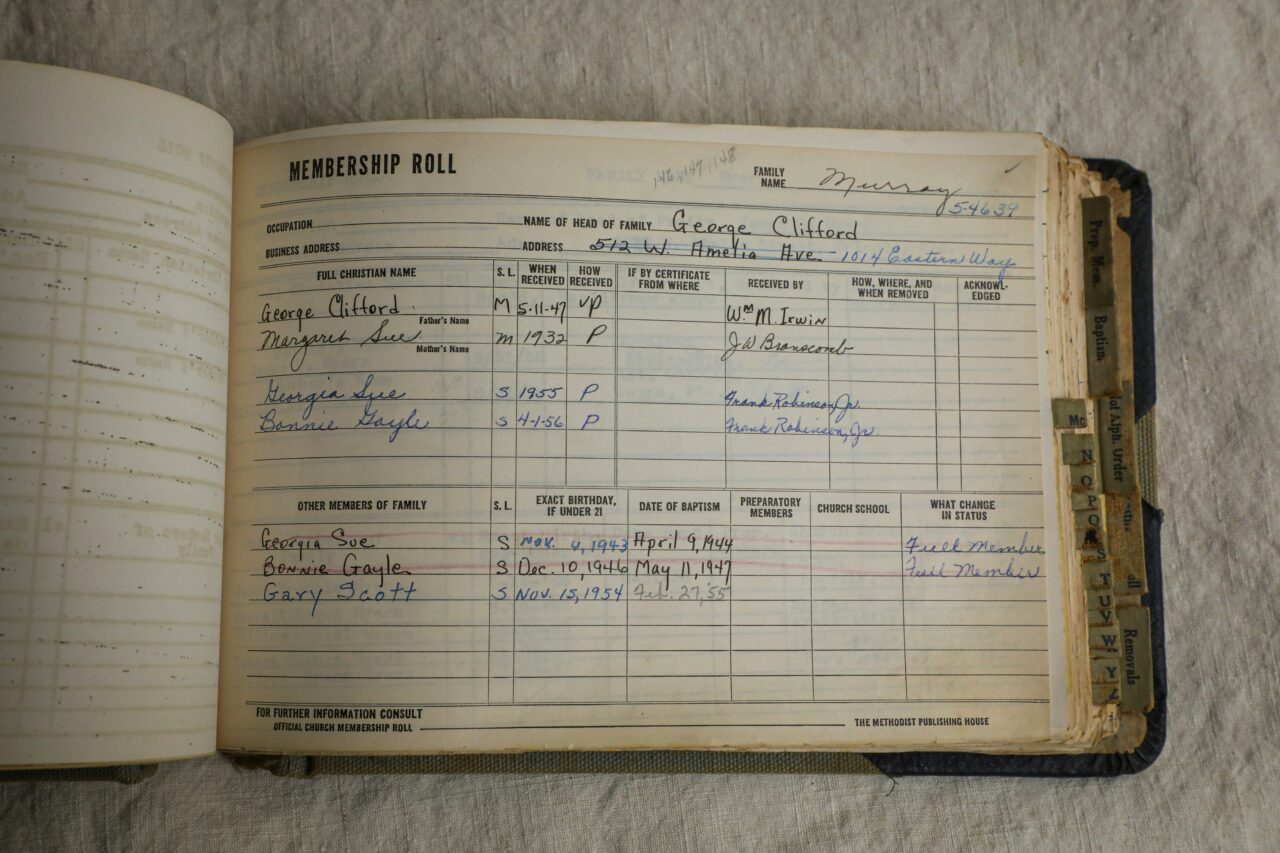 MEMBERSHIP ROLL
146, 147, 148
FAMILY NAME Murray
5-4639
OCCUPATION NAME OF HEAD OF FAMILY George Clifford
BUSINESS ADDRESS ADDRESS 512 W. Amelia Ave. 1014 Eastern Way
FULL CHRISTIAN NAME S. L. WHEN RECEIVED HOW RECEIVED IF BY CERTIFICATE FROM WHERE RECEIVED BY HOW, WHERE, AND WHEN REMOVED ACKNOWL-EDGED
George Clifford M 5-11-47 VP Wm M. Irwin
Father's Name
Margaret Sue M 1932 P J W Branscomb
Mother's Name
Georgia Sue S 1955 P Frank Robinson, Jr.
Bonnie Gayle S 4-1-56 P Frank Robinson, Jr.
OTHER MEMBERS OF FAMILY S. L. EXACT BIRTHDAY, IF UNDER 21 DATE OF BAPTISM PREPARATORY MEMBERS CHURCH SCHOOL WHAT CHANGE IN STATUS
Georgia Sue S Nov. 4, 1943 April 9, 1944 Full Member
Bonnie Gayle S Dec. 10, 1946 May 11, 1947 Full Member
Gary Scott S Nov. 15, 1954 Feb. 27, '55
FOR FURTHER INFORMATION CONSULT
OFFICIAL CHURCH MEMBERSHIP ROLL THE METHODIST PUBLISHING HOUSE
Prep. Mem.
Baptism
Alph. Order
Removals
Mc
N
O
P
S
T
U
V
W
Y
Z